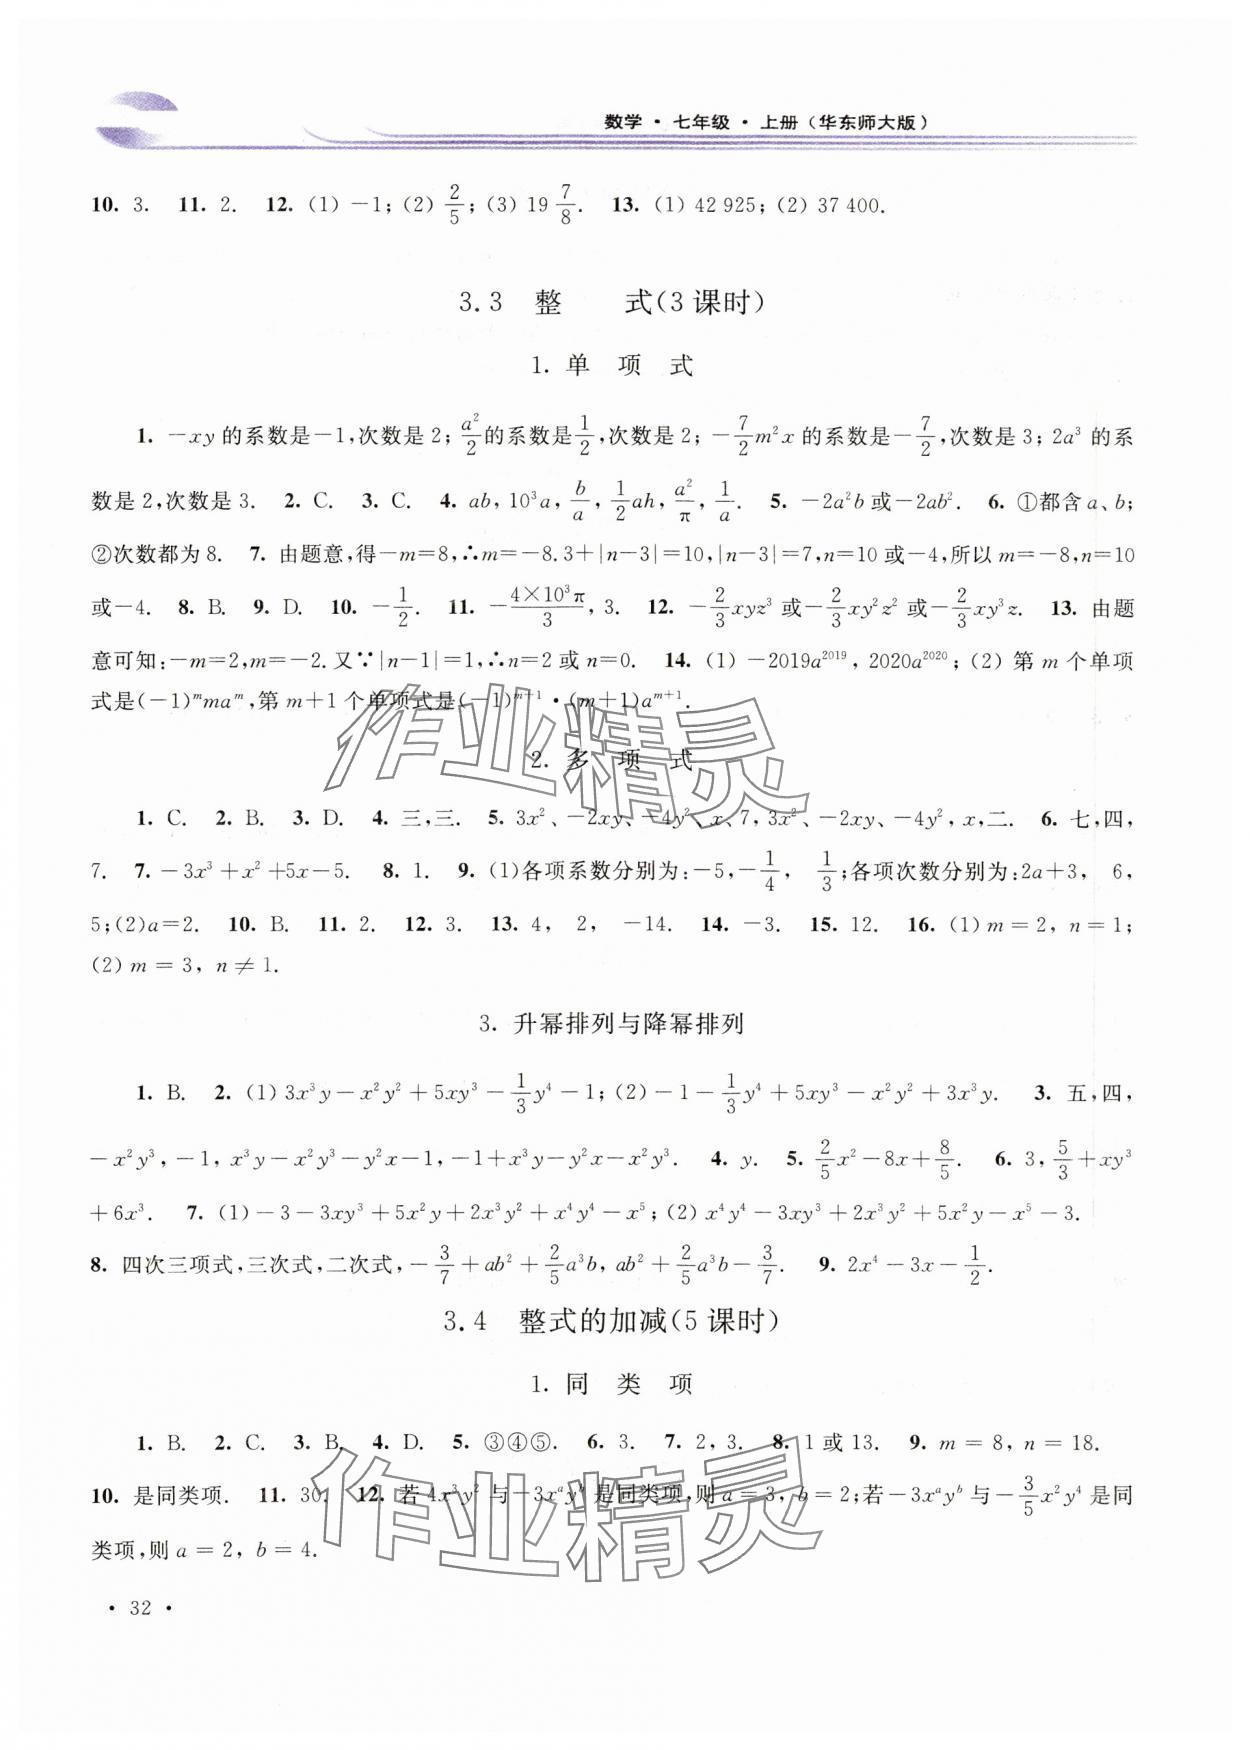 数学·七年级·上册(华东师大版)
10. 3. 11. 2. 12. (1) -1; (2) 2/5; (3) 19 7/8. 13. (1) 42 925; (2) 37 400.
3.3 整 式(3 课时)
1. 单 项 式
1. -xy 的系数是-1,次数是 2; a²/2 的系数是 1/2,次数是 2; -7/2 m²x 的系数是-7/2,次数是 3; 2a³ 的系
数是 2,次数是 3. 2. C. 3. C. 4. ab, 10³a, b/a, 1/2 ah, a²/π, 1/a. 5. -2a²b 或-2ab². 6. ①都含 a、b;
②次数都为 8. 7. 由题意,得-m=8,∴m=-8.3+|n-3|=10,|n-3|=7,n=10 或-4,所以 m=-8,n=10
或-4. 8. B. 9. D. 10. -1/2. 11. -4×10³π/3, 3. 12. -2/3 xyz³ 或-2/3 xy²z² 或-2/3 xy³z. 13. 由题
意可知:-m=2,m=-2.又∵|n-1|=1,∴n=2 或 n=0. 14. (1) -2019a²⁰¹⁹, 2020a²⁰²⁰; (2) 第 m 个单项
式是(-1)ᵐmaᵐ,第 m+1 个单项式是(-1)ᵐ⁺¹·(m+1)aᵐ⁺¹.
2. 多 项 式
1. C. 2. B. 3. D. 4. 三,三. 5. 3x²、-2xy、-4y²、x、7, 3x²、-2xy、-4y², x,二. 6. 七,四,
7. 7. -3x³+x²+5x-5. 8. 1. 9. (1)各项系数分别为:-5,-1/4, 1/3;各项次数分别为:2a+3, 6,
5;(2)a=2. 10. B. 11. 2. 12. 3. 13. 4, 2, -14. 14. -3. 15. 12. 16. (1) m = 2, n = 1;
(2) m = 3, n ≠ 1.
3. 升幂排列与降幂排列
1. B. 2. (1) 3x³y-x²y²+5xy³-1/3 y⁴-1; (2) -1-1/3 y⁴+5xy³-x²y²+3x³y. 3. 五,四,
-x²y³, -1, x³y-x²y³-y²x-1, -1+x³y-y²x-x²y³. 4. y. 5. 2/5 x²-8x+8/5. 6. 3, 5/3+xy³
+6x³. 7. (1) -3-3xy³+5x²y+2x³y²+x⁴y⁴-x⁵; (2) x⁴y⁴-3xy³+2x³y²+5x²y-x⁵-3.
8. 四次三项式,三次式,二次式,-3/7+ab²+2/5 a³b, ab²+2/5 a³b-3/7. 9. 2x⁴-3x-1/2.
3.4 整式的加减(5 课时)
1. 同 类 项
1. B. 2. C. 3. B. 4. D. 5. ③④⑤. 6. 3. 7. 2, 3. 8. 1 或 13. 9. m = 8, n = 18.
10. 是同类项. 11. 30. 12. 若 4x³y² 与-3xᵃyᵇ 是同类项,则 a = 3, b = 2;若-3xᵃyᵇ 与-3/5 x²y⁴ 是同
类项,则 a = 2, b = 4.
· 32 ·
作业精灵
作业精灵